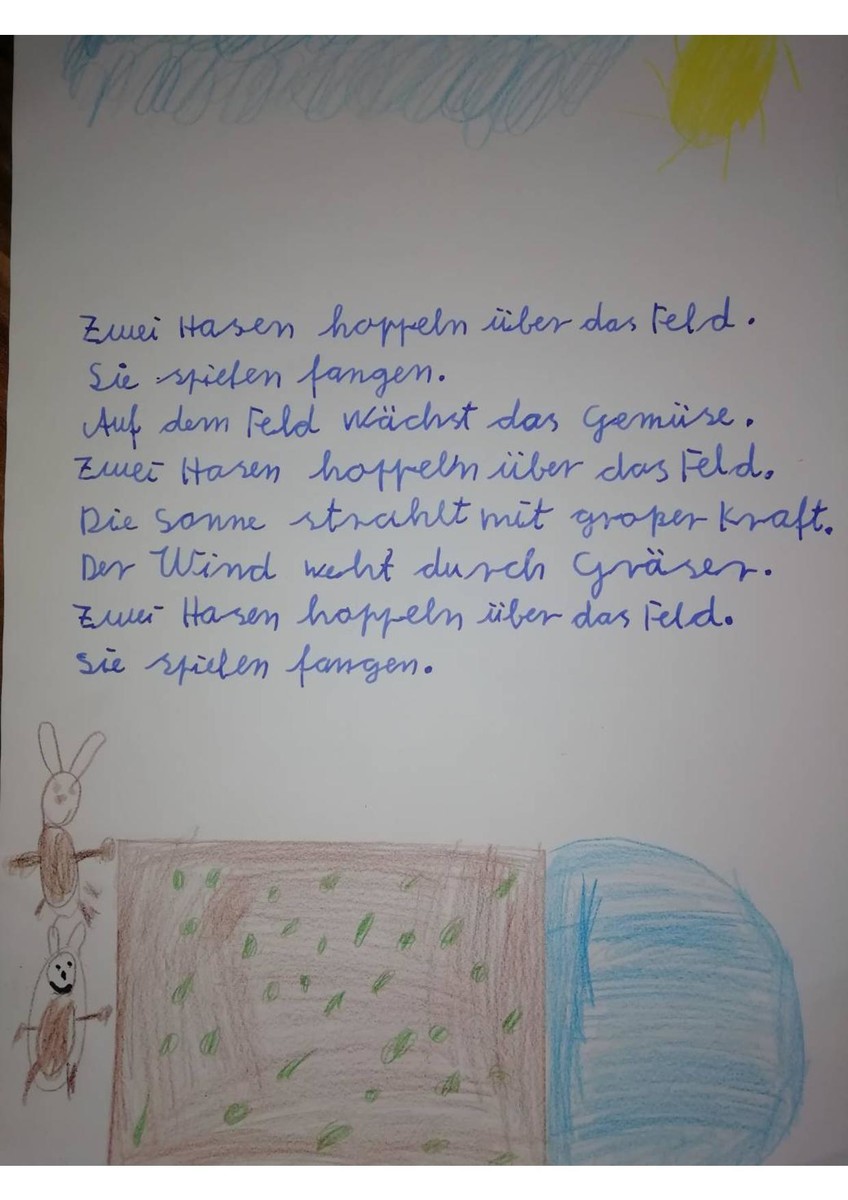 Zwei Hasen hoppeln über das Feld.
Sie spielen fangen.
Auf dem Feld wächst das Gemüse.
Zwei Hasen hoppeln über das Feld.
Die Sonne strahlt mit großer Kraft.
Der Wind weht durch Gräser.
Zwei Hasen hoppeln über das Feld.
Sie spielen fangen.